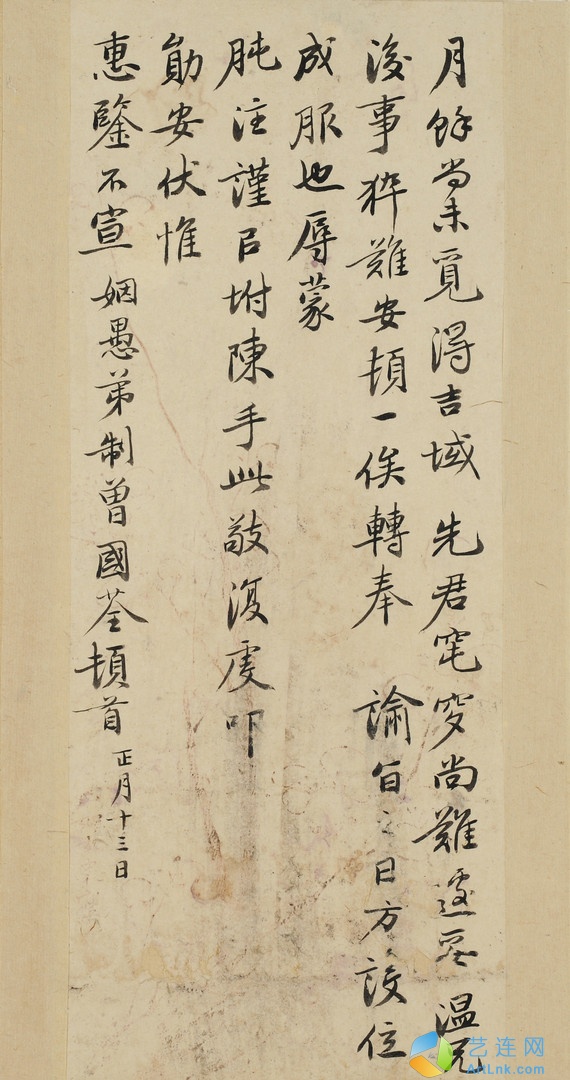 月餘尚未覓得吉域先君窀穸尚難遽
溫兄
後事猝難安頓一俟轉奉諭旨之日方設位
成服也辱蒙
肫注謹以坿陳手此敬復虔叩
勛安伏惟
惠鑒不宣姻愚弟制曾國荃頓首正月十三日
艺连网
ArtLnk.com